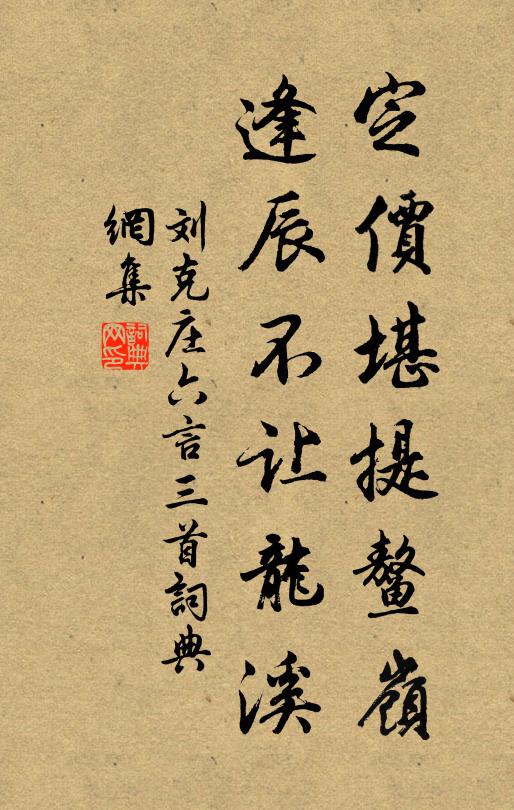 定價堪提鰲嶺
逢辰不让龍溪
刘克庄六言三首詞典
網集
詞典
网印